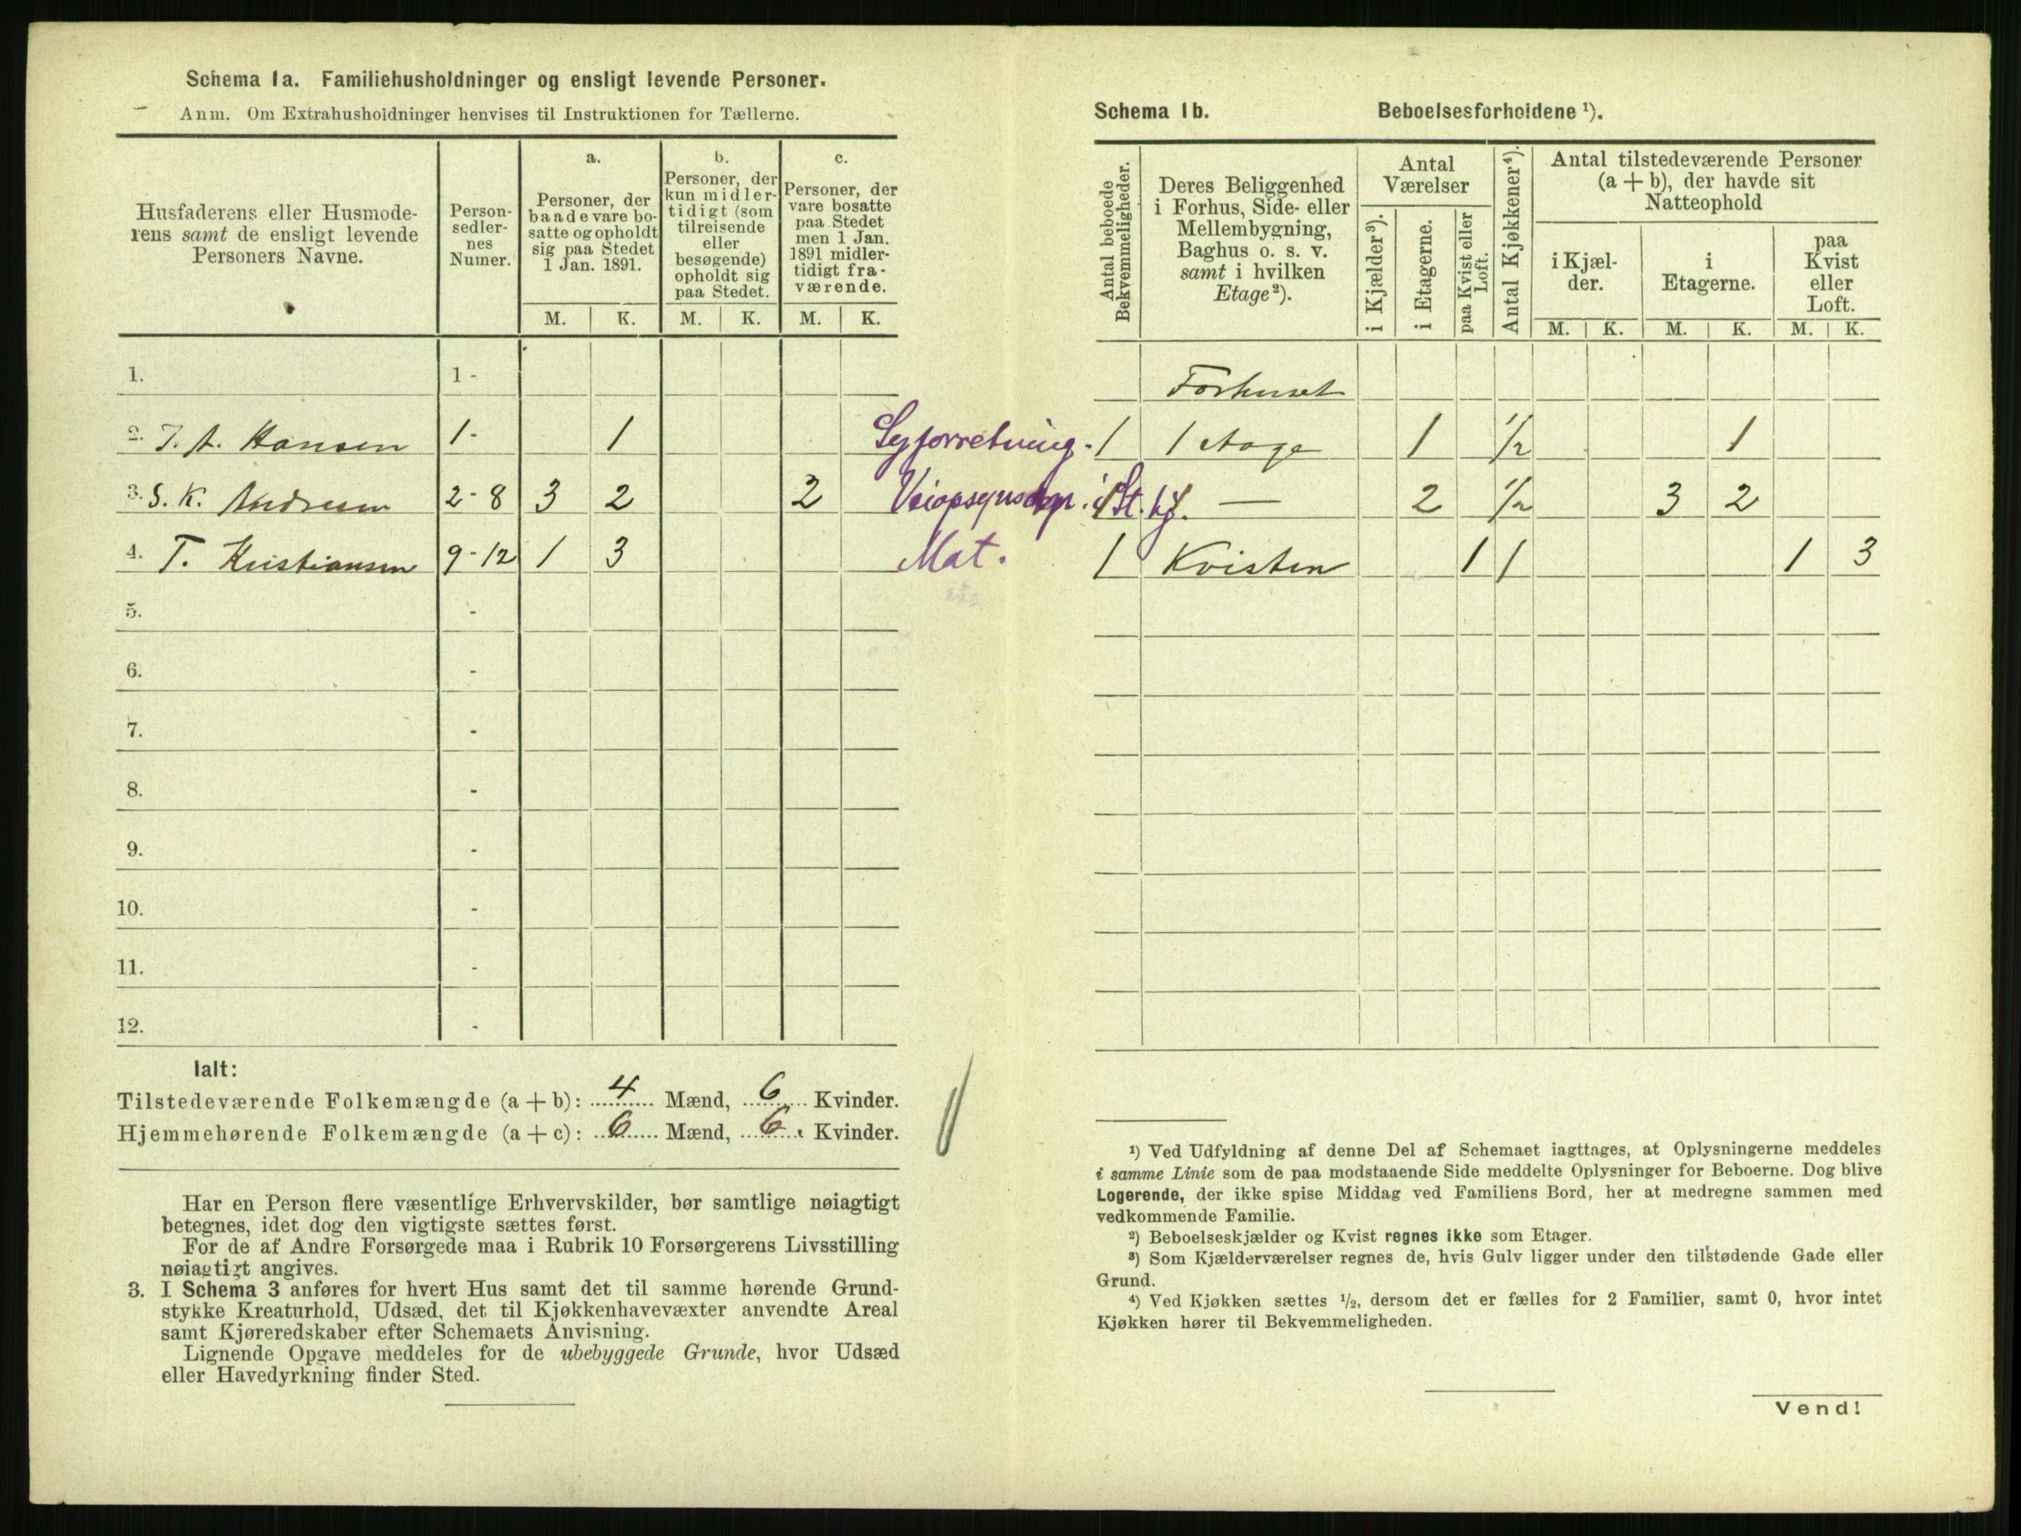 Schema 1a. Familiehusholdninger og ensligt levende Personer.
Anm. Om Extrahusholdninger henvises til Instruktionen for Tællerne.
Husfaderens eller Husmode-
rens samt de ensligt levende
Personers Navne.
Person-
sedler-
nes
Numer.
a.
Personer, der
baade vare bo-
satte og opholdt
sig paa Stedet
1 Jan. 1891.
b.
Personer, der
kun midler-
tidigt (som
tilreisende
eller
besøgende)
opholdt sig
paa Stedet.
c.
Personer, der
vare bosatte
paa Stedet
men 1 Jan.
1891 midler-
tidigt fra-
værende.
M. K. M. K. M. K.
1. 1 -
2. J. A. Hansen 1 - 1 Syforretning.
3. S. K. Andresen 2 - 8 3 2 2 Veiopsynsdep. i St. kj.
4. T. Kristiansen 9 - 12 1 3 Mat.
5. -
6. -
7. -
8. -
9. -
10. -
11. -
12. -
Ialt:
Tilstedeværende Folkemængde (a + b): 4 Mænd, 6 Kvinder.
Hjemmehørende Folkemængde (a + c): 6 Mænd, 6 Kvinder.
Har en Person flere væsentlige Erhvervskilder, bør samtlige nøiagtigt
betegnes, idet dog den vigtigste sættes først.
For de af Andre Forsørgede maa i Rubrik 10 Forsørgerens Livsstilling
nøiagtigt angives.
3. I Schema 3 anføres for hvert Hus samt det til samme hørende Grund-
stykke Kreaturhold, Udsæd, det til Kjøkkenhavevæxter anvendte Areal
samt Kjøreredskaber efter Schemaets Anvisning.
Lignende Opgave meddeles for de ubebyggede Grunde, hvor Udsæd
eller Havedyrkning finder Sted.
Schema 1b. Beboelsesforholdene ¹).
Antal beboede
Bekvemmeligheder.
Deres Beliggenhed
i Forhus, Side- eller
Mellembygning,
Baghus o. s. v.
samt i hvilken
Etage²).
Antal
Værelser
i Kjælder³).
i Etagerne.
paa Kvist eller
Loft.
Antal Kjøkkener⁴).
Antal tilstedeværende Personer
(a + b), der havde sit
Natteophold
i Kjæl-
der.
i
Etagerne.
paa
Kvist
eller
Loft.
M. K. M. K. M. K.
Forhuset
1 1 1 ½ 1
1 1 — 2 ½ 3 2
1 Kvisten 1 1 1 3
¹) Ved Udfyldning af denne Del af Schemaet iagttages, at Oplysningerne meddeles
i samme Linie som de paa modstaaende Side meddelte Oplysninger for Beboerne. Dog blive
Logerende, der ikke spise Middag ved Familiens Bord, her at medregne sammen med
vedkommende Familie.
²) Beboelseskjælder og Kvist regnes ikke som Etager.
³) Som Kjælderværelser regnes de, hvis Gulv ligger under den tilstødende Gade eller
Grund.
⁴) Ved Kjøkken sættes ½, dersom det er fælles for 2 Familier, samt 0, hvor intet
Kjøkken hører til Bekvemmeligheden.
Vend!